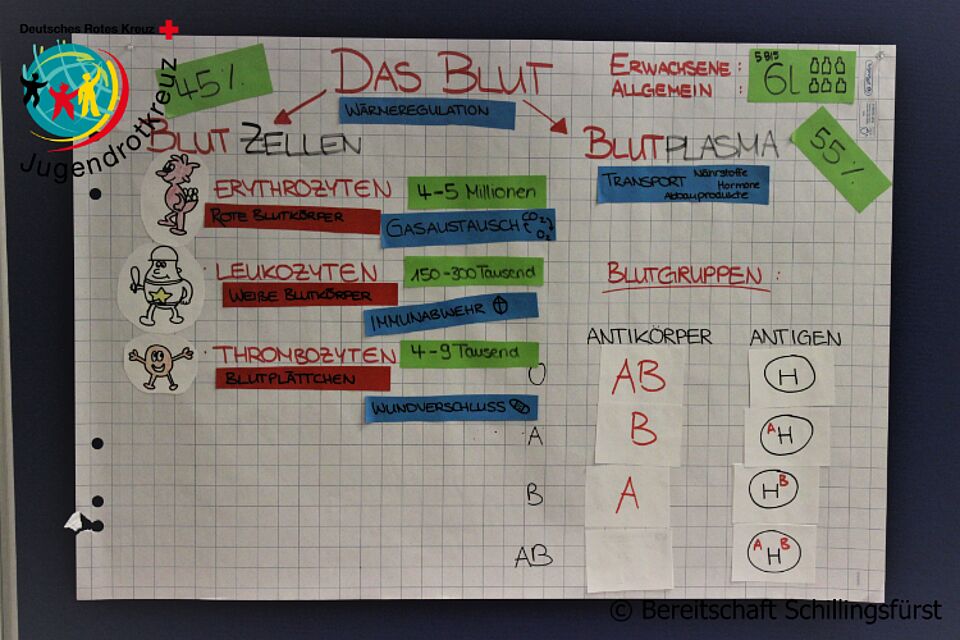 Deutsches Rotes Kreuz
Jugendrotkreuz
45%
DAS BLUT
WÄRMEREGULATION
ERWACHSENE :
ALLGEMEIN :
5 BIS
6l
BLUTZELLEN
BLUTPLASMA
55%
TRANSPORT Nährstoffe
Hormone
Abbauprodukte
ERYTHROZYTEN
4-5 Millionen
ROTE BLUTKÖRPER
GASAUSTAUSCH CO2
O2
LEUKOZYTEN
150-300 Tausend
WEIßE BLUTKÖRPER
IMMUNABWEHR
THROMBOZYTEN
4-9 Tausend
BLUTPLÄTTCHEN
WUNDVERSCHLUSS
BLUTGRUPPEN :
ANTIKÖRPER ANTIGEN
O AB H
A B A H
B A H B
AB A H B
© Bereitschaft Schillingsfürst